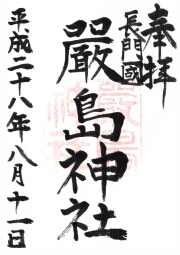 奉拝
長門國
嚴島神社
平成二十八年八月十一日